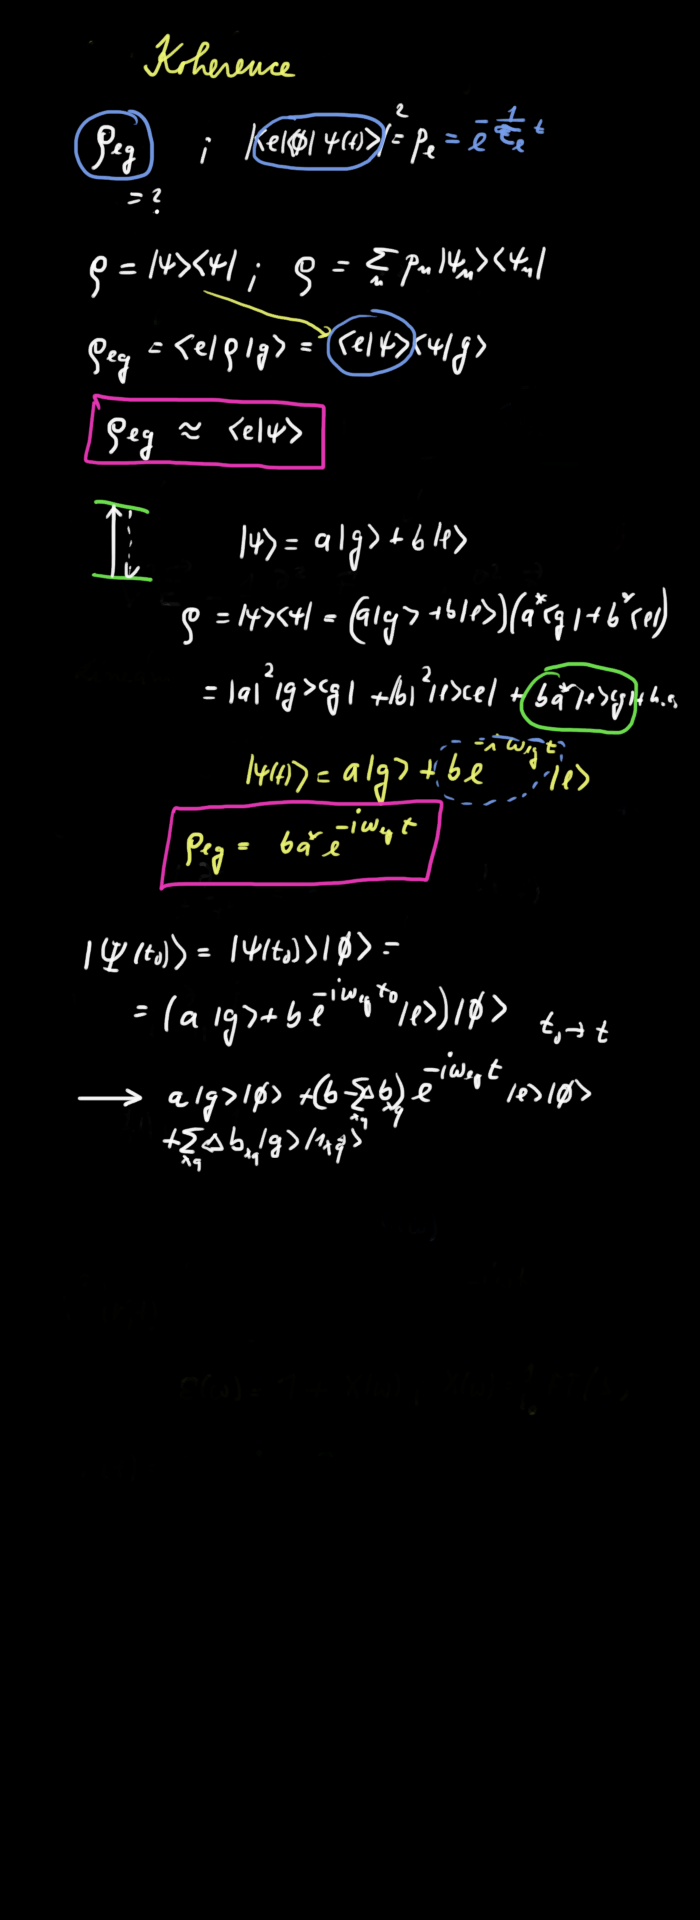 Koherence
ρ_eg ; |<e|<ϕ|Ψ(t)>|² = p_e = e^{-\frac{1}{τ_e}t}
= ?
ρ = |ψ><ψ| ; ρ = Σ_n p_n |ψ_n><ψ_n|
ρ_eg = <e|ρ|g> = <e|ψ><ψ|g>
ρ_eg ≈ <e|ψ>
|ψ> = a|g> + b|e>
ρ = |ψ><ψ| = (a|g> + b|e>)(a*<g| + b*<e|)
= |a|²|g><g| + |b|²|e><e| + ba*|e><g| + h.c.
|ψ(t)> = a|g> + b e^{-iω_eg t} |e>
ρ_eg = ba* e^{-iω_eg t}
|Ψ(t₀)> = |ψ(t₀)>|ϕ> =
= (a|g> + b e^{-iω_eg t₀}|e>)|ϕ> t₀ → t
→ a|g>|ϕ> + (b - Σ_λq Δb_λq) e^{-iω_eg t} |e>|ϕ>
+ Σ_λq Δb_λq |g>|1_λq>